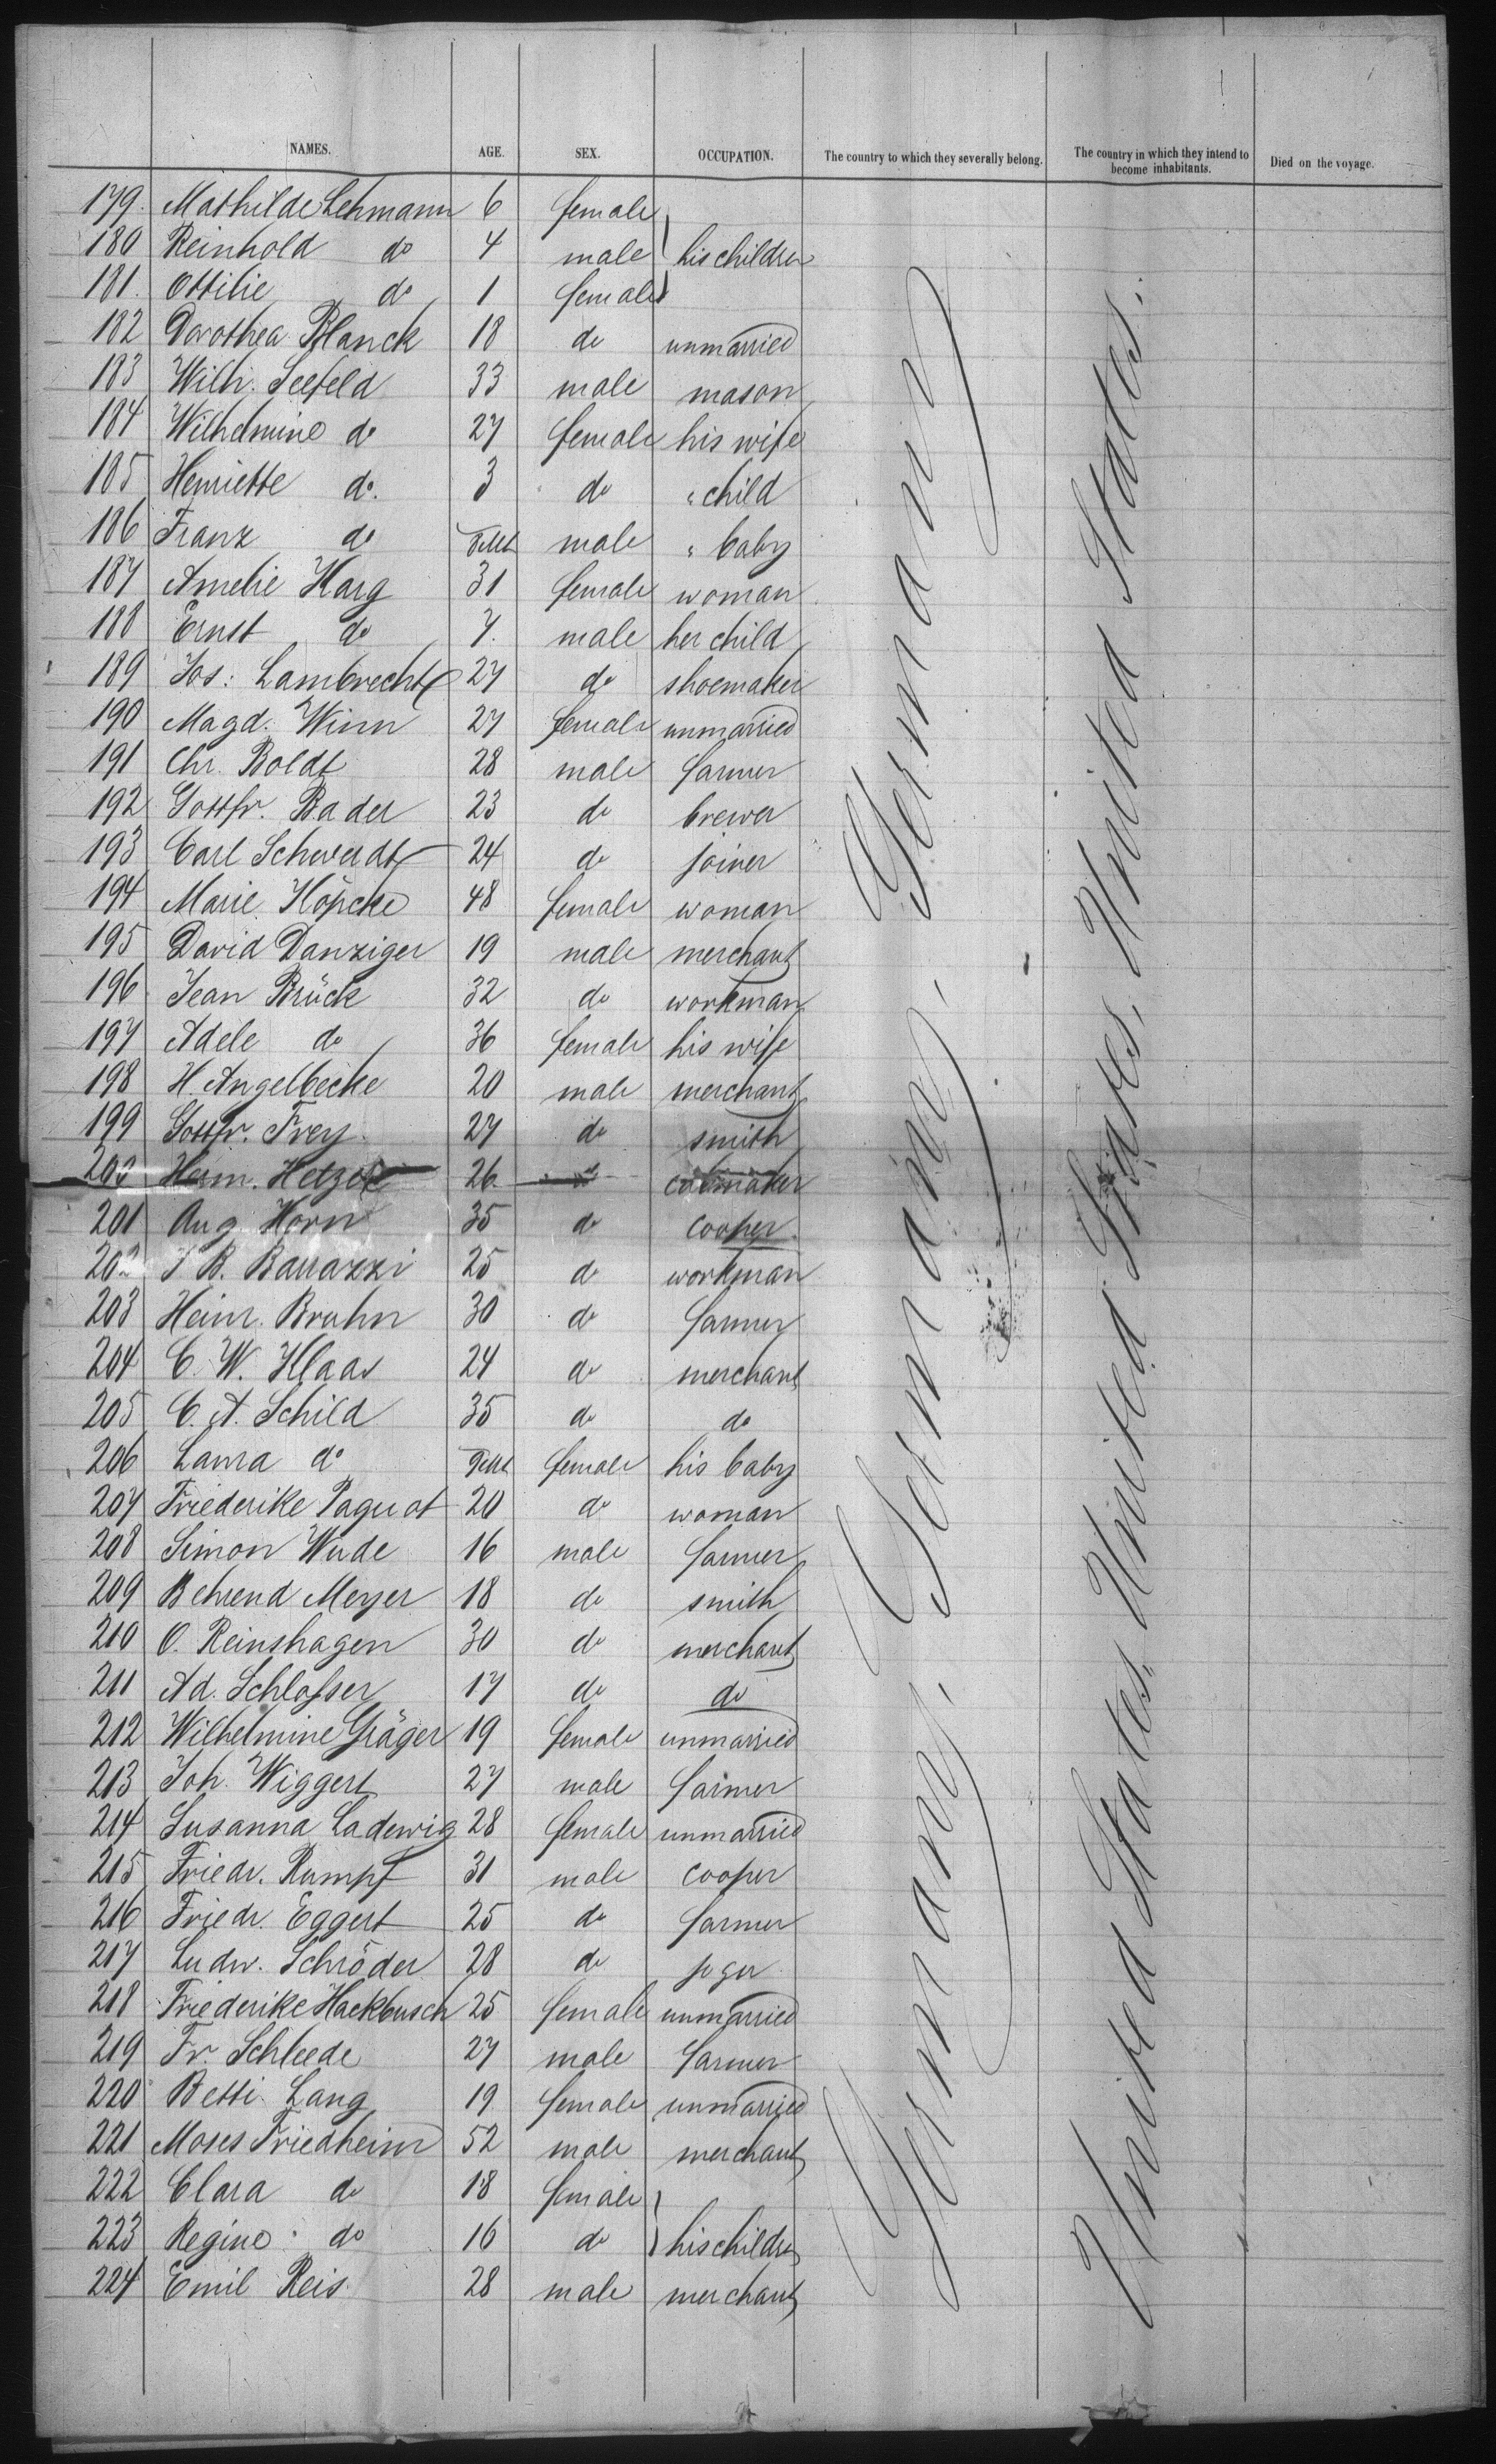 NAMES. AGE. SEX. OCCUPATION. The country to which they severally belong. The country in which they intend to become inhabitants. Died on the voyage.
179. Mathilde Lehmann 6 female
180 Reinhold do 4 male his children
181. Ottilie do 1 female
182 Dorothea Planck 18 do unmarried
183 Wilh. Seefeld 33 male mason
184 Wilhelmine do 27 female his wife
185 Henriette do. 3 do " child
186 Franz do male " baby
187 Amelie Harg 31 female woman
188 Ernst do 7. male her child
189 Jos: Lambrecht 27 do shoemaker
190 Magd. Winn 27 female unmarried
191 Chr. Boldt 28 male farmer
192 Gottfr. Bader 23 do brewer
193 Carl Schwerdt 24 do joiner
194 Marie Höpcke 48 female woman
195 David Danziger 19 male merchant
196 Jean Brück 32 do workman
197 Adele do 36 female his wife
198 H. Angelbecke 20 male merchant
199 Gottfr. Frey 27 do smith
200 Herm. Hetzel 26 cabmaker
201 Aug Horn 35 do cooper
202 J B. Barrazzi 25 do workman
203 Heinr. Bruhn 30 do farmer
204 C. W. Haas 24 do merchant
205 C. A. Schild 35 do do
206 Laura do female his baby
207 Friederike Paquot 20 do woman
208 Simon Wude 16 male farmer
209 Behrend Meyer 18 do smith
210 O. Reinshagen 30 do merchant
211 Ad. Schlosser 17 do do
212 Wilhelmine Gräger 19 female unmarried
213 Joh. Wiggert 27 male farmer
214 Susanna Ladewig 28 female unmarried
215 Friedr. Rumpf 31 male cooper
216 Friedr. Eggert 25 do farmer
217 Ludw. Schröder 28 do
218 Friederike Hackbusch 25 female unmarried
219 Fr. Schleede 27 male farmer
220 Betti Lang 19 female unmarried
221 Moses Friedheim 52 male merchant
222 Clara do 18 female
223 Regine do 16 do his children
224 Emil Reis 28 male merchant
Germany, Germany, Germany
United States, United States, United States.